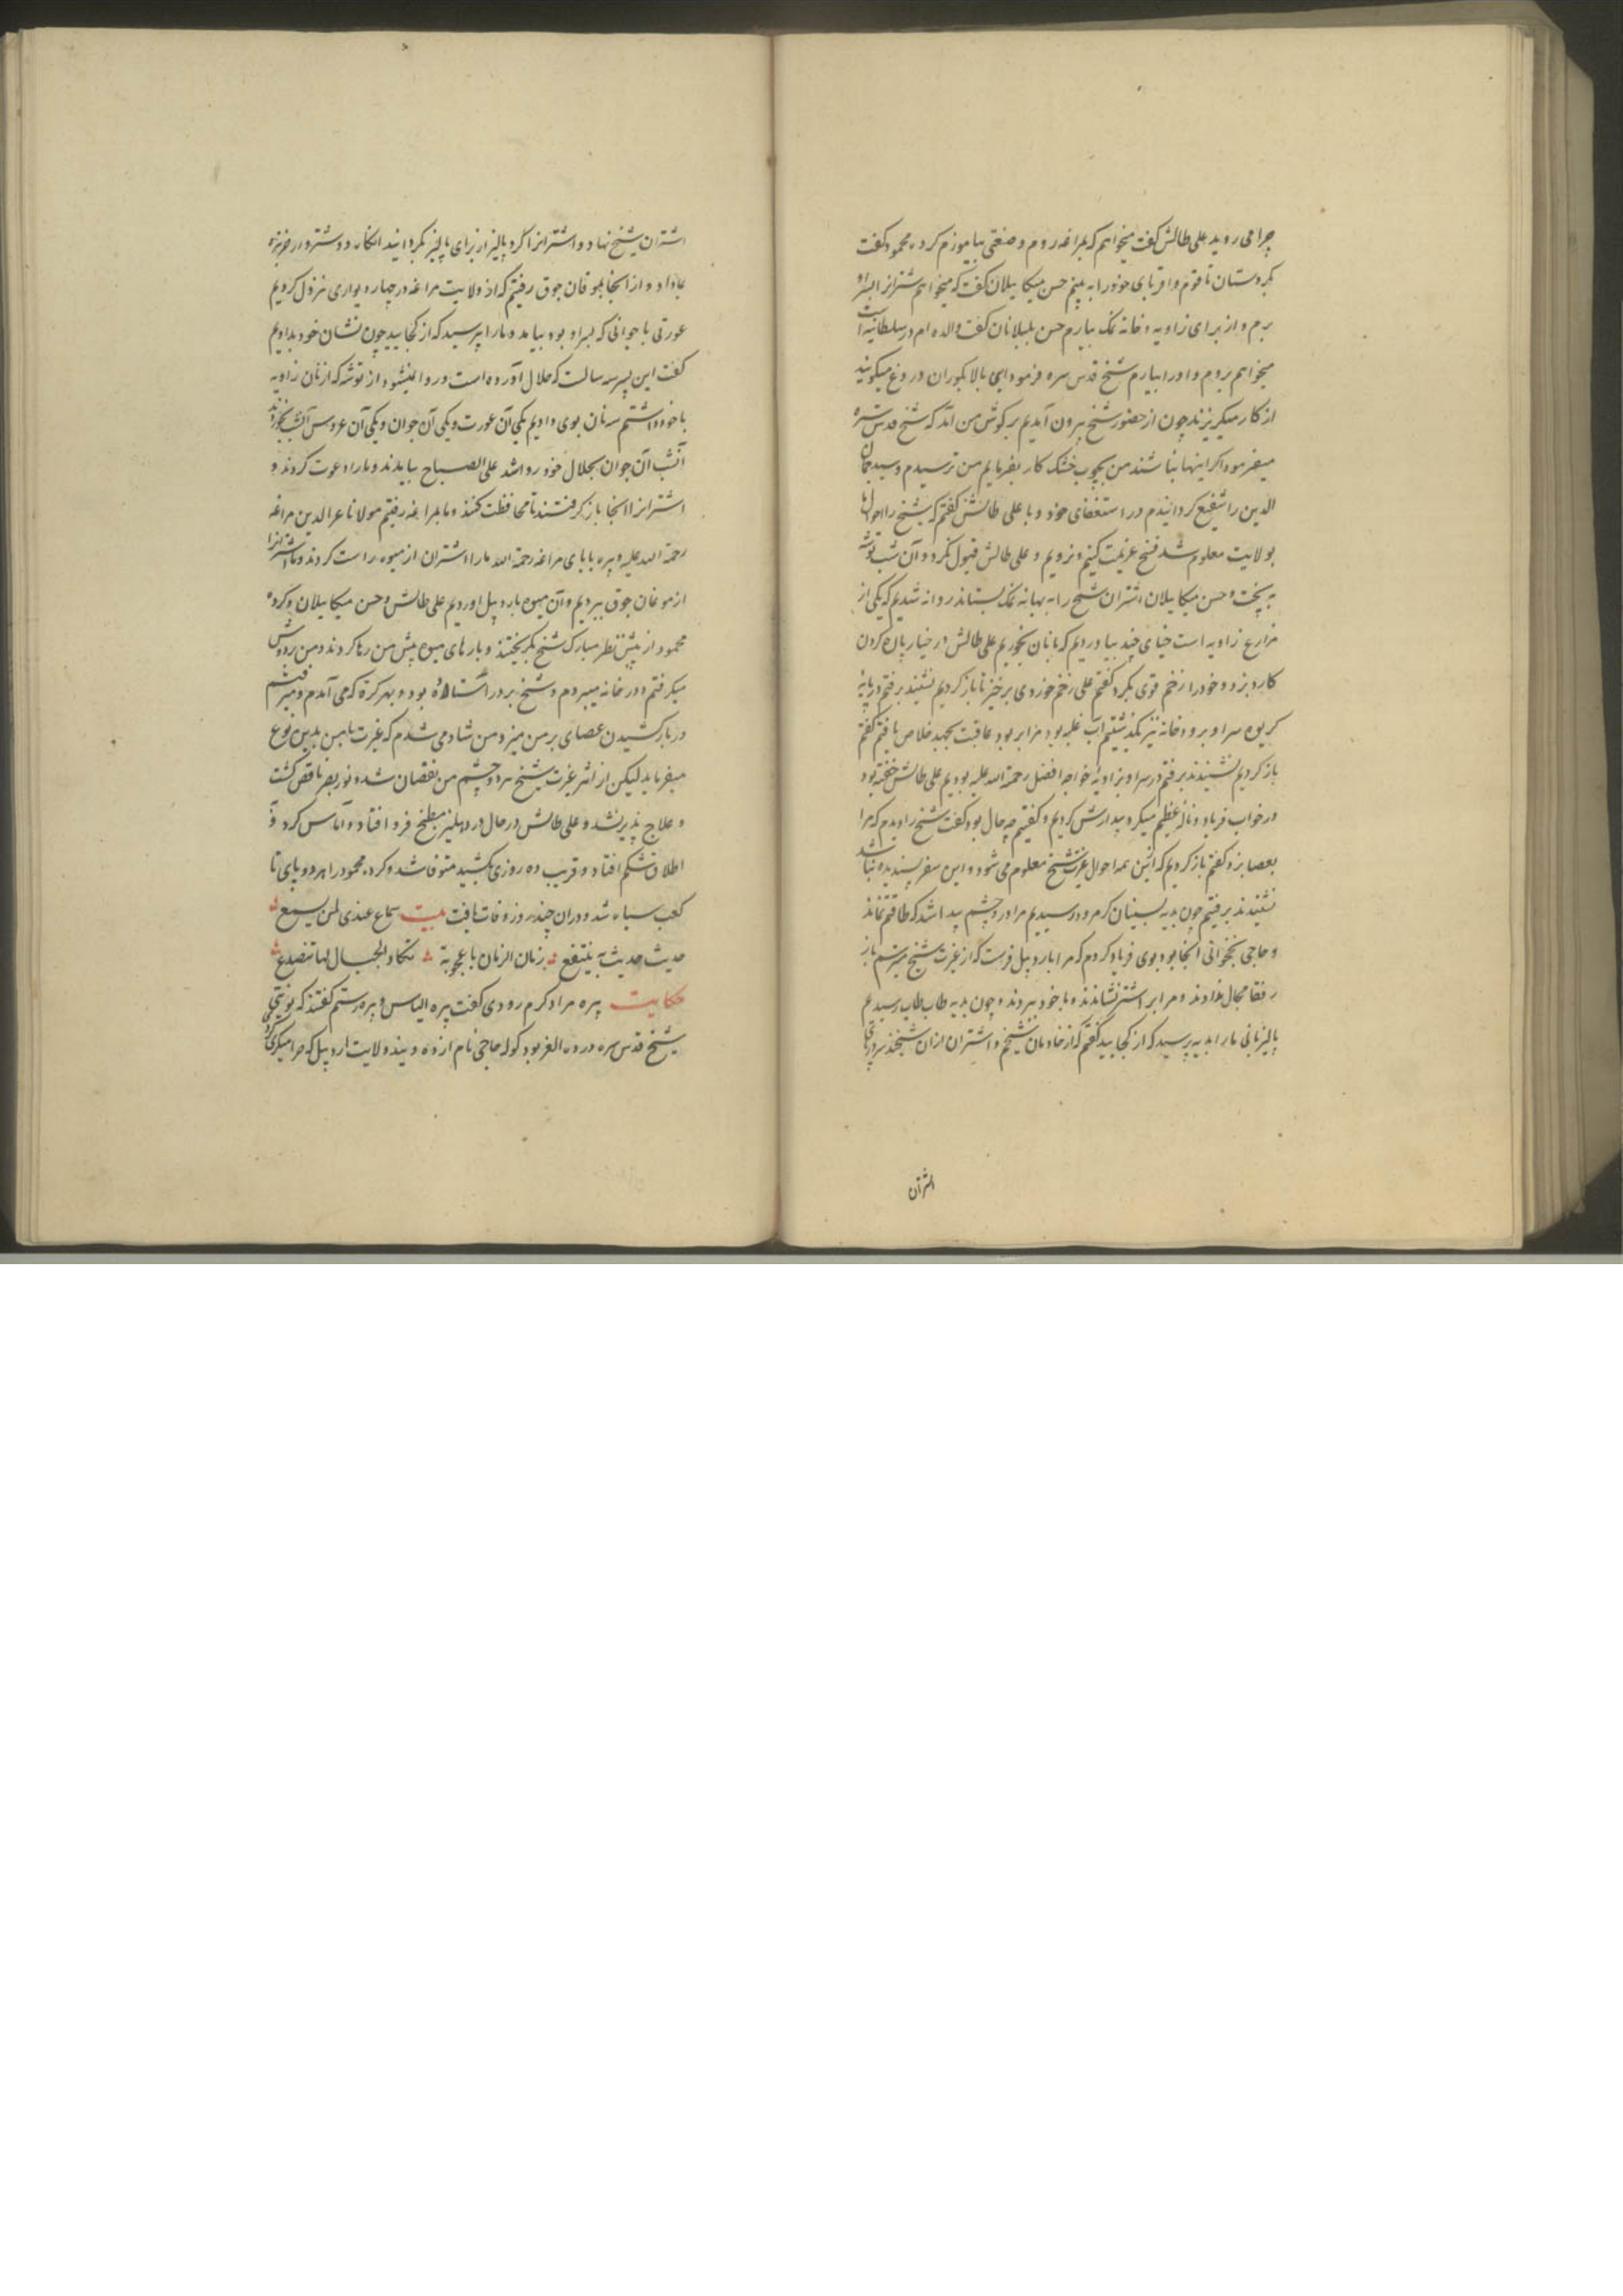 چرا می روید علی طالش گفت میخواهم که بمراغه روم و صنعتی بیاموزم کرده محمود گفت
بکردستان تا قوم و اقربای خود را به بینم حسن میکاییلان گفت که میخواهم شترانرا بسراو
برم و از برای زاویه و خانه نمک بیارم حسن بلبلانان گفت والده ام در سلطانیه است
میخواهم بروم و او را بیارم شیخ قدس سره فرمود ای بالا بکوران دروغ میگویند
از کار میگریزند چون از حضور شیخ بیرون آمدیم بر گوش من آمد که شیخ قدس سره
میفرمود اگر اینها نباشند من بچوب خشک کار بفرمایم من ترسیدم و سید جمال
الدین را شفیع گردانیدم در استعفای خود و با علی طالش گفتم که شیخ را احوال ما
بولایت معلوم شد فسخ عزیمت کنیم و نرویم و علی طالش قبول نکرد و آن شب توشه
به پخت و حسن میکاییلان اشتران شیخ را به بهانه نمک بستاند روانه شدیم که یکی از
مزارع زاویه است خیاری چند بیاوردیم که با نان بخوریم علی طالش در خیار پاره کردن
کارد بزد و خود را زخم قوی بکرد گفتم علی زخم خوردی برخیز تا باز گردیم نشنیدند برفتیم در پایه
کریوه سراو برودخانه نیز بگذشتیم آب غلبه بود مرا ببرد عاقبت بجهد خلاص یافتم گفتم
باز گردیم نشنیدند برفتیم در سراو بزاویه خواجه افضل رحمة الله علیه بودیم علی طالش خفته بود
در خواب فریاد و ناله عظیم میکرد بیدارش کردیم و گفتیم چه حال بود گفت شیخ را دیدم که مرا
بعصا بزد گفتم باز گردیم که ازین همه احوال غیرت شیخ معلوم می شود و این سفر پسندیده نباشد
نشنیدند برفتیم چون بدیه بسینان کرمرود رسیدیم مرا درد چشم پیدا شد که طاقتم نماند
و حاجی نخجوانی آنجا بود بوی فریاد کردم که مرا باردبیل فرست که از غیرت شیخ میترسم باز
رفقا مجال ندادند و مرا بر اشتر نشاندند و با خود ببردند و چون بدیه طاب طاب رسیدیم
پالیزبانی ما را بدید پرسید که از کجایید گفتم که از خادمان شیخم و اشتران از آن شیخند
اشتران
اشتران شیخ نهاد و اشترانرا گرد پالیز از برای پالیز بگردانیدند آنگاه دو شتروار خربزه
بما داد و از آنجا بموقان جوق رفتیم که از ولایت مراغه در چهار دیواری نزول کردیم
عورتی با جوانی که پسر او بود بیامد و ما را بپرسید که از کجایید چون نشان خود بدادیم
گفت این پسر سه سالست که حلال آورده است و روا نمیشود از توشه که از نان زاویه
با خود داشتم سه نان بوی دادیم یکی آن عورت و یکی آن جوان و یکی آن عروس آن شب بخوردند
آنشب آن جوان بحلال خود روا شد علی الصباح بیامدند و ما را دعوت کردند و
اشترانرا آنجا باز گرفتند تا محافظت کنند و ما بمراغه رفتیم مولانا عز الدین مراغه
رحمة الله علیه و پیره بابای مراغه رحمة الله ما را اشتران از میوه راست کردند و ما اشترانرا
از موغان جوق ببردیم و آن میوه باردبیل آوردیم علی طالش و حسن میکاییلان و کرده
محمود از پیش نظر مبارک شیخ بگریختند و بارهای میوه پیش من رها کردند و من بر دوش
میگرفتم و در خانه میبردم و شیخ بر در استاده بود و بهر کرة که می آمدم و میرفتم
در بار کشیدن عصای بر من میزد و من شاد می شدم که غیرت با من بدین نوع
میفرماید لیکن از اثر غیرت شیخ هر دو چشم من بنقصان شد و نور بصر ناقص گشت
و علاج پذیر نشد و علی طالش در حال در دهلیز مطبخ فرو افتاد و آماس کرد و
اطلاق شکم افتاد و قریب ده روزی بکشید متوفا شد و کرد محمود را هر دو پای تا
کعب سیاه شد و در آن چند روز وفات یافت بیت سماع عندی لمن یسمع
حدیث حدیث به ینتفع زمان الزمان باعجوبة تکاد الجبال لها تتصدع
حکایت پیره مراد کرم رودی گفت پیره الیاس و پیره رستم گفتند که نوبتی
شیخ قدس سره در ده الغر بود گوله حاجی نام از ده ویند ولایت اردبیل که حرامیگری کردی